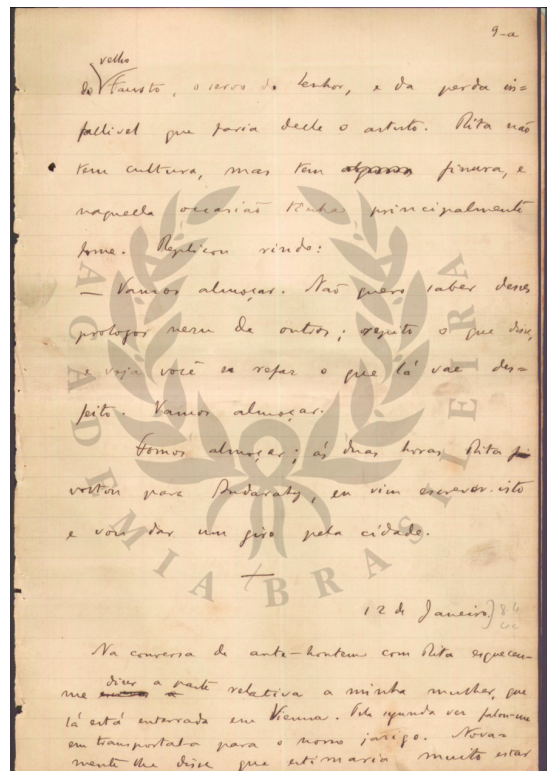 9-a
velho
do Fausto, o servo do Senhor, e da perda in=
fallivel que faria delle o astuto. Rita não
tem cultura, mas tem finura, e
naquella occasião tinha principalmente
fome. Replicou rindo:
— Vamos almoçar. Não quero saber desses
prologos nem de outros; repito o que disse,
e veja você se refaz o que lá vae des=
feito. Vamos almoçar.
Fomos almoçar; ás duas horas Rita
voltou para Andarahy, eu vim escrever isto
e vou dar um giro pela cidade.
12 de Janeiro
Na conversa de ante-hontem com Rita esqueceu-
dizer a parte
me relativa a minha mulher, que
lá está enterrada em Vienna. Pela segunda vez falou-me
em transportala para o nosso jazigo. Nova=
mente lhe disse que estimaria muito estar
ACADEMIA BRASILEIRA